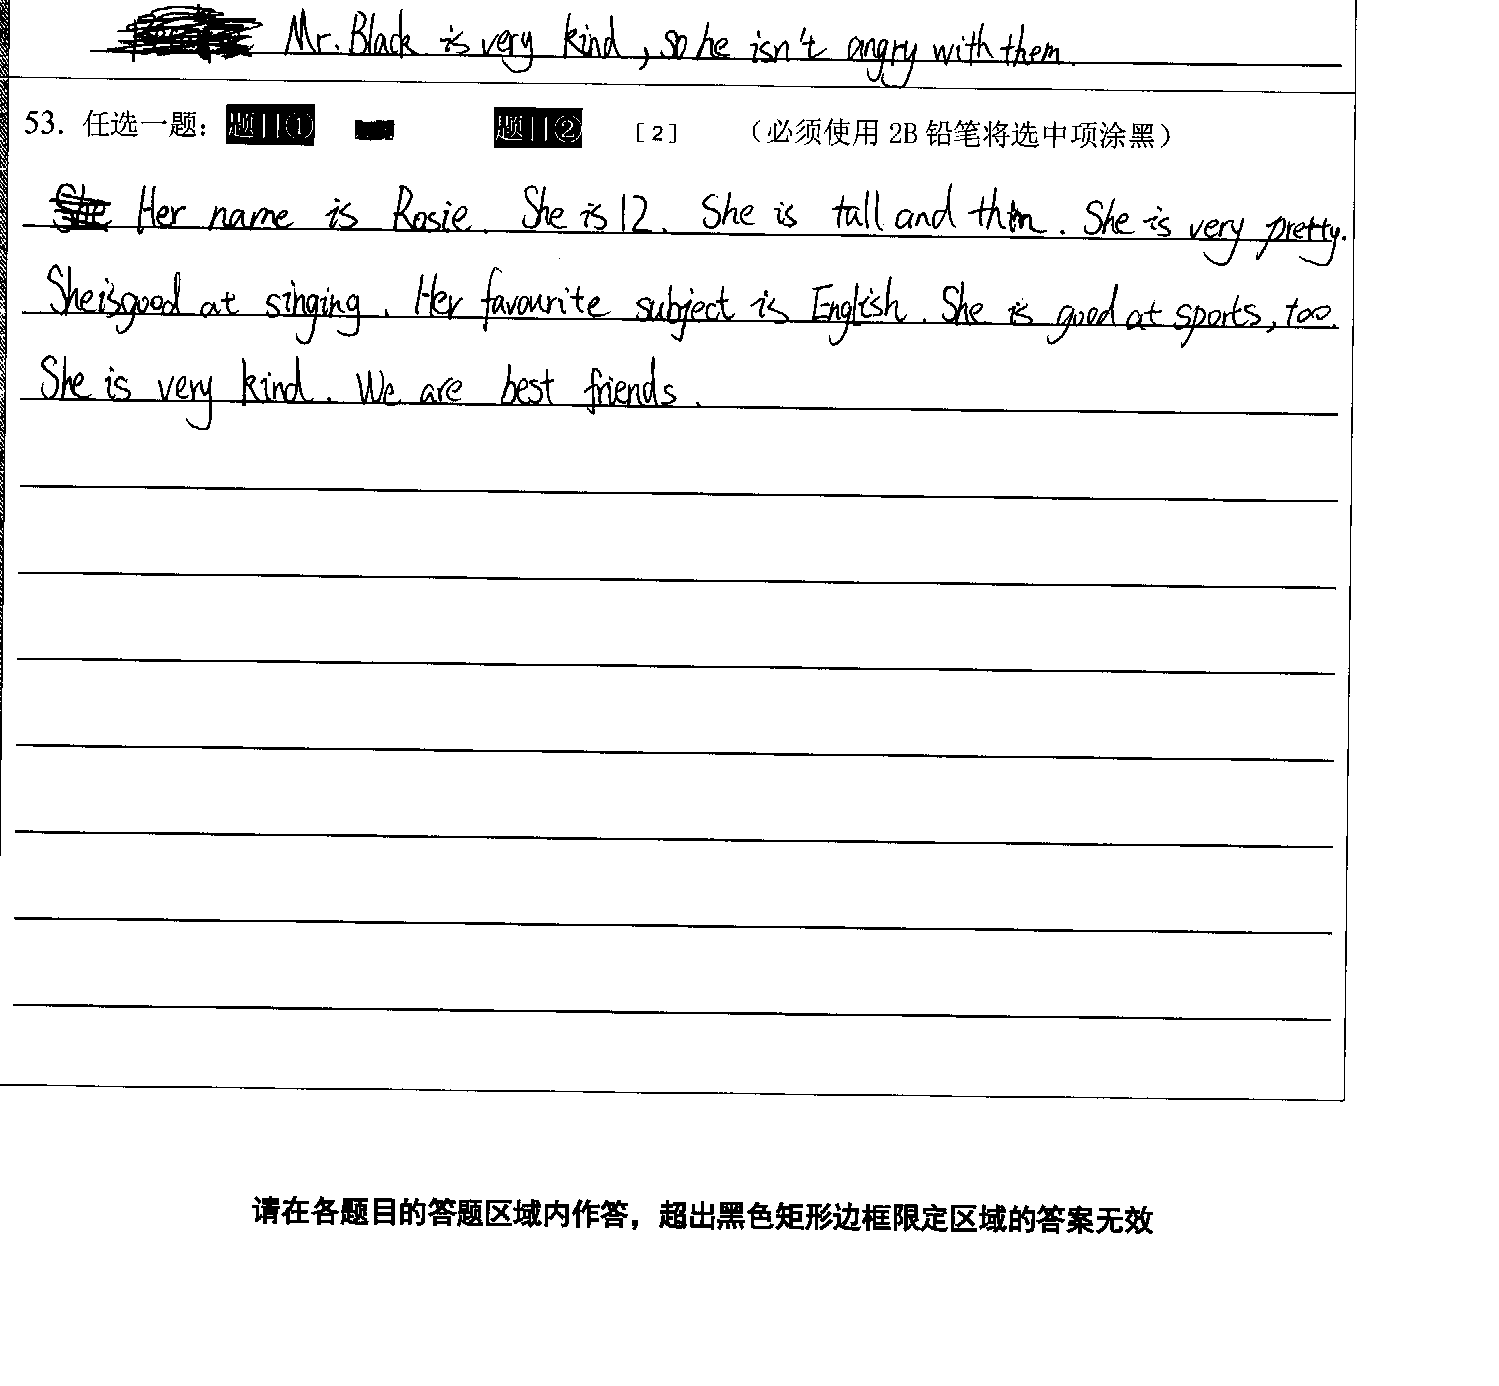 Mr. Black is very kind, so he isn't angry with them.
53. 任选一题： 题目① 题目② [2] （必须使用 2B 铅笔将选中项涂黑）
Her name is Rosie. She is 12. She is tall and thin. She is very pretty.
She is good at singing. Her favourite subject is English. She is good at sports, too.
She is very kind. We are best friends.
请在各题目的答题区域内作答，超出黑色矩形边框限定区域的答案无效